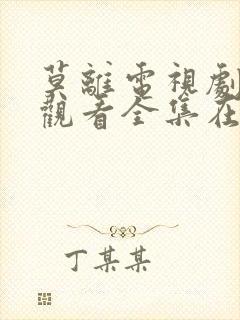 莫離電視劇
觀看全集在
丁某某